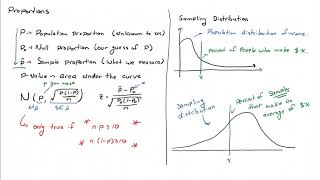 Proportions
P - Population proportion (unknown to us)
P₀ - Null proportion (our guess of P)
p̂ - Sample proportion (what we measure)
P-Value is area under the curve
N(p, √(p(1-p)/n)) z = (p̂ - P₀)/√(P₀(1-P₀)/n)
only true if * n·p ≥ 10 *
* n(1-p) ≥ 10 *
Sampling Distribution
Population distribution of income.
Percent of People who make $X
X
Sampling
distribution
Percent of Samples
that make an
average of $X